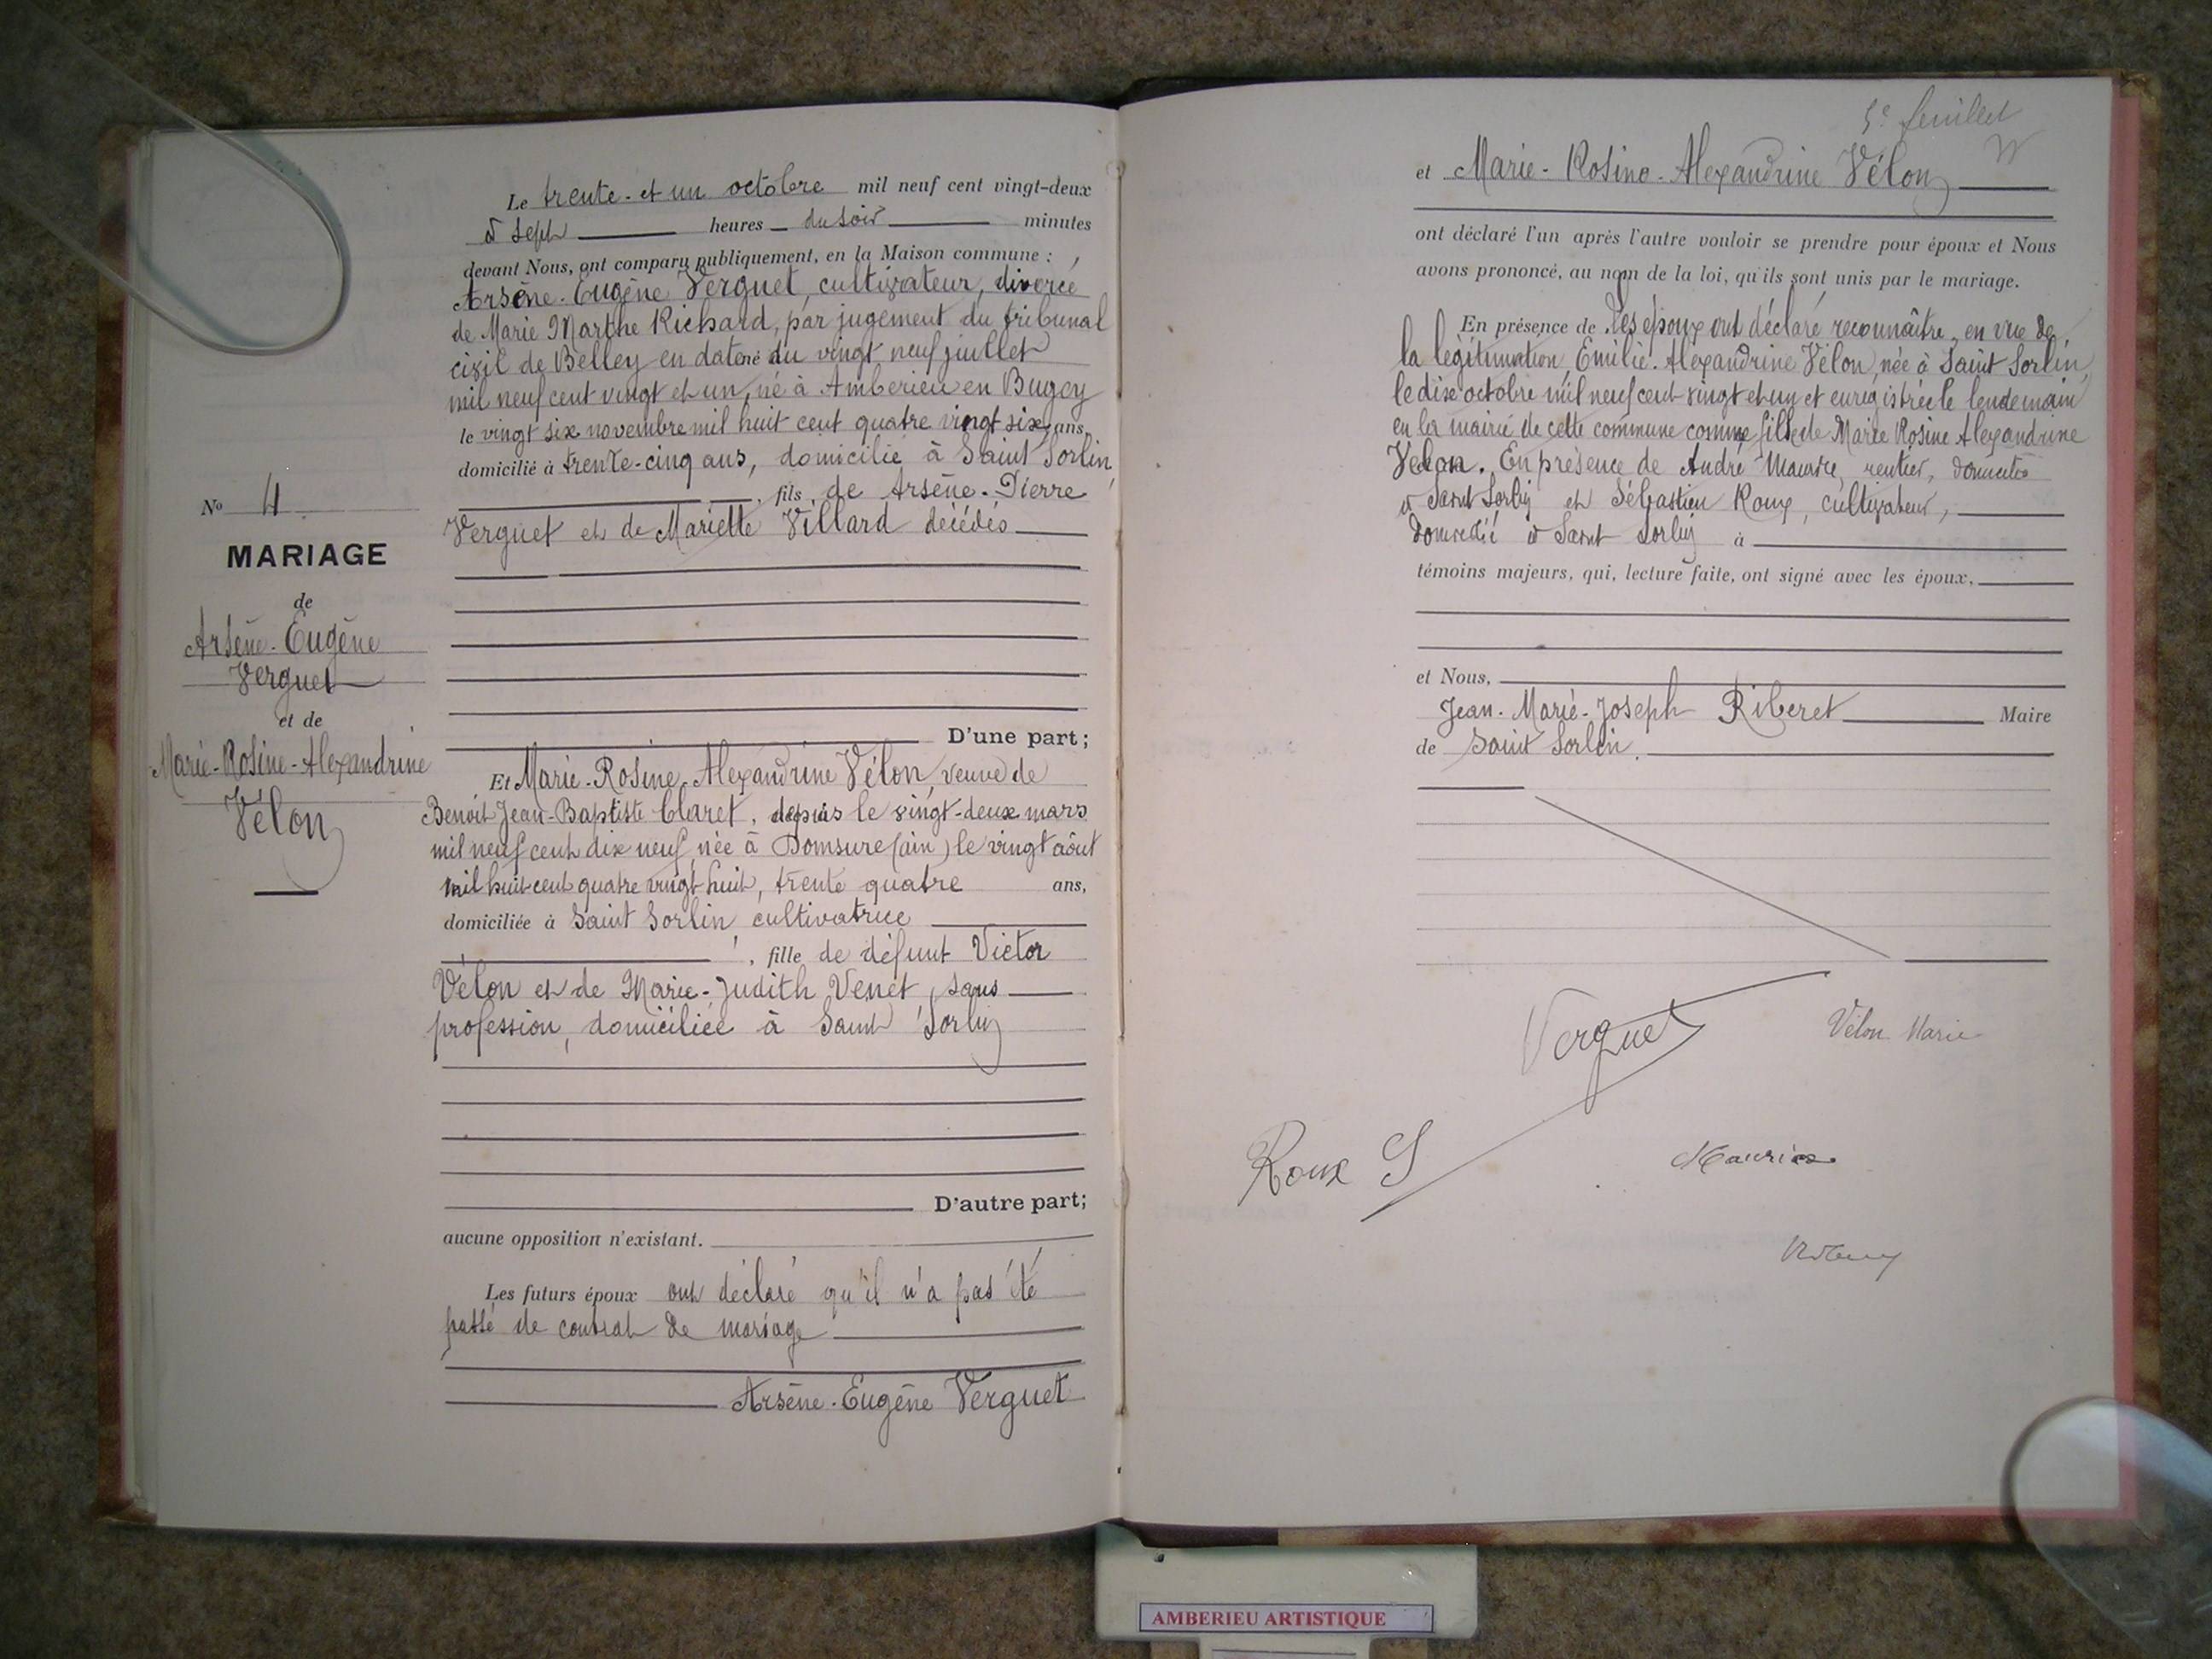 Le trente-et un octobre mil neuf cent vingt-deux
à sept heures du soir minutes
devant Nous, ont comparu publiquement, en la Maison commune :
Arsène-Eugène Verguet, cultivateur, divorcé
de Marie Marthe Richard, par jugement du tribunal
civil de Belley en date né du vingt neuf juillet
mil neuf cent vingt et un, né à Amberieu en Bugey
le vingt six novembre mil huit cent quatre vingt six, ans,
domicilié à trente-cinq ans, domicilié à Saint Sorlin,
, fils de Arsène-Pierre
Verguet et de Mariette Villard décédés
No 4
MARIAGE
de
Arsène-Eugène
Verguet
et de
Marie-Rosine-Alexandrine
Vélon
D'une part;
Et Marie-Rosine-Alexandrine Vélon, veuve de
Benoit Jean-Baptiste Claret, depuis le vingt-deux mars
mil neuf cent dix neuf, née à Domsure (ain) le vingt août
mil huit cent quatre vingt huit, trente quatre ans,
domiciliée à Saint Sorlin, cultivatrice
, fille de défunt Victor
Vélon et de Marie-Judith Venet, sans
profession, domiciliée à Saint Sorlin
D'autre part;
aucune opposition n'existant.
Les futurs époux ont déclaré qu'il n'a pas été
passé de contrat de mariage
Arsène-Eugène Verguet
5e feuillet
et Marie-Rosine-Alexandrine Vélon
ont déclaré l'un après l'autre vouloir se prendre pour époux et Nous
avons prononcé, au nom de la loi, qu'ils sont unis par le mariage.
En présence de Les époux ont déclaré reconnaître, en vue de
la légitimation, Emilie-Alexandrine Vélon, née à Saint Sorlin,
le dix octobre mil neuf cent vingt et un et enregistrée le lendemain
en la mairie de cette commune comme fille de Marie Rosine Alexandrine
Vélon. En présence de André Maurice, rentier, domicilié
à Saint Sorlin et Sébastien Roux, cultivateur,
domicilié à Saint Sorlin à
témoins majeurs, qui, lecture faite, ont signé avec les époux,
et Nous,
Jean-Marie-Joseph Riberet Maire
de Saint Sorlin.
Verguet
Vélon Marie
Roux S
Maurice
AMBERIEU ARTISTIQUE